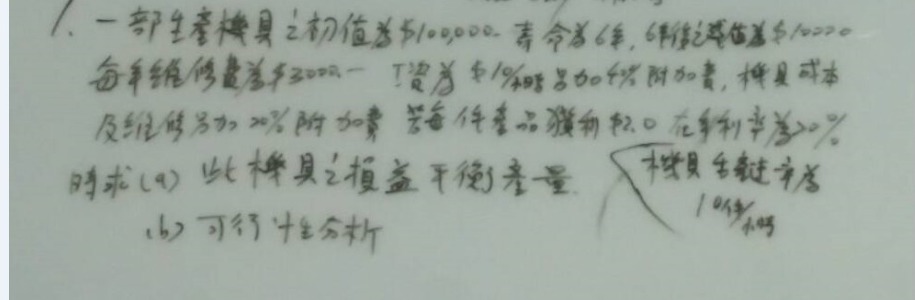 1. 一部生產機具之初值為$100,000. 壽命為6年, 6年後之殘值為$10000
每年維修費為$3000.- 工資為$10/小時另加40%附加費, 機具成本
及維修另加20%附加費 若每件產品獲利$2.0 在年利率為20%
時求(a) 此機具之損益平衡產量 機具生產速率為
10件/小時
(b) 可行性分析